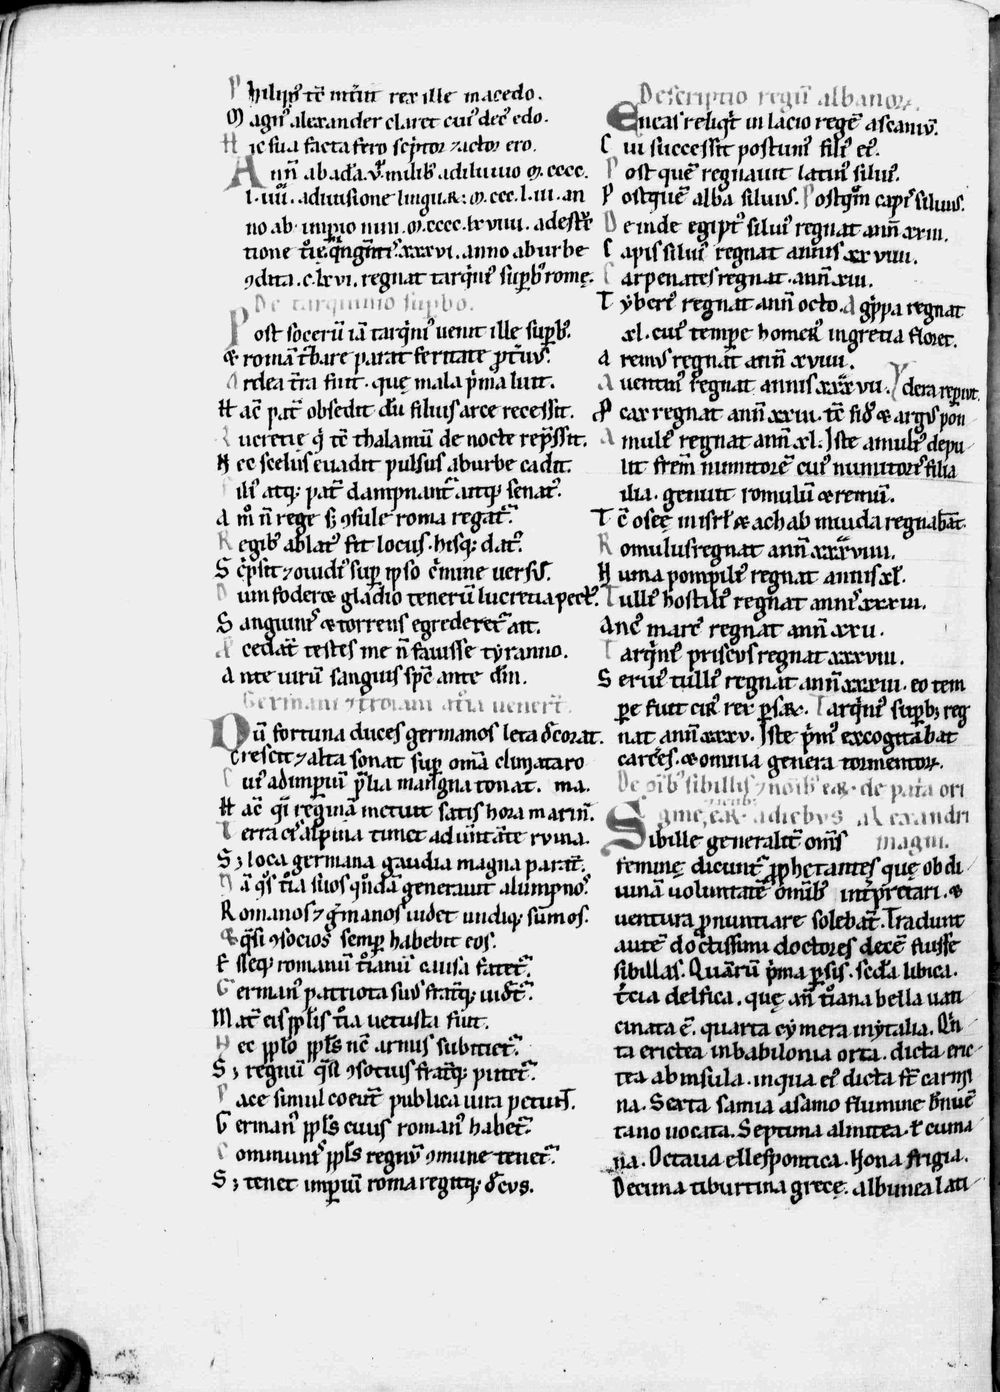 Philipp' tc̄ mr̄iit rex ille macedo.
Magn' alexander claret cui' dec' edo.
Hic sua facta fero sc̄ptor ⁊ actor ero.
Ann̄ ab adā. v. milib' a diluuio M.cccc.
l.iiii. a diuisione linguaꝝ. M.ccc.l.iii. an
no ab imp̄io nini. M.cccc.lxviiii. a destr̄
tione t'ie q'ngn̄ti'.xxxvi. anno ab urbe
ꝯdita .c.lxvi. regnat tarq'n' sup̄b' romę.
De tarquinio sup̄bo.
Post socerū iā tarq'n' uenit ille sup̄b'.
& romā t'bare parat feritate p̄t'uus.
Ardea t'ra fuit. quę mala p'ma luit.
Hac pat' obsedit dū filius arce recessit.
Lucretię q' tc̄ thalamū de nocte rep̄ssit.
Hec scelus euadit pulsus ab urbe cadit.
Fili' atq; pat' dampnant' atq; senat'.
Am̊ n̄ rege s; ꝯsule roma regat'.
Regib' ablat' fit locus. hisq; dat'.
Sc'psit ⁊ ouidi' sup ipso c'mine uersus.
Dum foderet gladio tenerū lucretia pect'.
Sanguinis & torrens egrederet' ait.
Accedāt testes me n̄ fauisse tyranno.
Ante uirū sanguis sp̄c ante dm̄.
Germani ⁊ troiani at'ia uenert̄.
Dū fortuna duces germanos leta d'corat.
Crescit ⁊ alta sonat sup omā climata ro
Cui' ad imp̄iū p'lia magna tonat. ma.
Hac q'i regina metuit satis hora marin̄.
Terra cis alpina timet aduntate ruina.
S; loca germana gaudia magna parat̄.
Nā q's t'ia suos q'ndā generauit alumpnos.
Romanos ⁊ g'manos uidet undiq; sumos.
& q'si ꝯsocios semp habebit eos.
Esseq; romanū t'ianū causa fatet'.
German' patriota suus frat'q; uidet'.
Mat' eis pp̄lis t'ia uetusta fuit.
Hec pp̄lo pp̄ls nc̄ armis subiciet'.
S; regnū q'si ꝯsocius frat'q; pitet'.
Pace simul coeunt publica iura petunt.
German' pp̄ls cuius roman' habet'.
Communis pp̄ls regnū ꝯmune tenet'.
S; tenet imp̄iū roma regitq; d'cus.
Descriptio regū albanoꝝ.
Eneas reliq't in lacio regē ascaniū.
Cui successit postum' fili' ei'.
Post quē regnauit latin' silui'.
Postquē alba siluius. Postq̄m capi' siluius.
Deinde egipt' silui' regnat ann̄ xxiii.
Capis silui' regnat annis xxviiii.
Carpenates regnat ann̄ xiii.
Tyberi' regnat ann̄ octo. Agp̄pa regnat
xl. cui' tempe homer' in gretia floret.
Aremus regnat ann̄ xviiii.
Auentin' regnat annis xxxvii. Ydera repiut.
Pcax regnat ann̄ xxiii. tc̄ fid' & argus pon
Amuli' regnat ann̄ xl. Iste amuli' depu
lit frem̄ numitorē cui' numitoris filia
ilia. genuit romulū & remū.
Tc̄ osee in isrł & achab in iuda regnabāt.
Romulus regnat ann̄ xxxviiii.
Numa pompili' regnat annis xl.
Tulli' hostili' regnat annis xxxiii.
Anc' marc' regnat ann̄ xxv.
Tarq'ni' priscus regnat xxxviii.
Serui' tulli' regnat ann̄ xxxiii. eo tem
pe fuit cir' rex psaꝝ. Tarq'ni' supb; reg
nat ann̄ xxxv. Iste p'm' excogitabat
carces. & omnia genera tormentoꝝ.
De oīb' sibillis ⁊ noīb' eaꝝ. de pat'a ori
gine, eaꝝ. a diebus alexandri
Sibille generalit' om̄s magni.
feminę dicunt' p̄phetantes quę ob di
uinā voluntatē om̄ib' int'pretari. &
uentura p̄nuntiare solebāt. Tradunt
autē doctissimi doctores decē fuisse
sibillas. Quarū p'ma p̄sis. sc̄da libica.
t'cia delfica. quę an̄ t'oiana bella uati
cinata ē. quarta cymera in ytalia. Qn̄
ta erictea in babilonia orta. dicta eric
tea ab insula. in qua ei' dicta st̄ carmi
na. Sexta samia a samo flumine b'nuē
tano uocata. Septima almitea. ł cuma
na. Octaua ellespontica. Nona frigia.
Decima tiburtina grecę. albunea lati